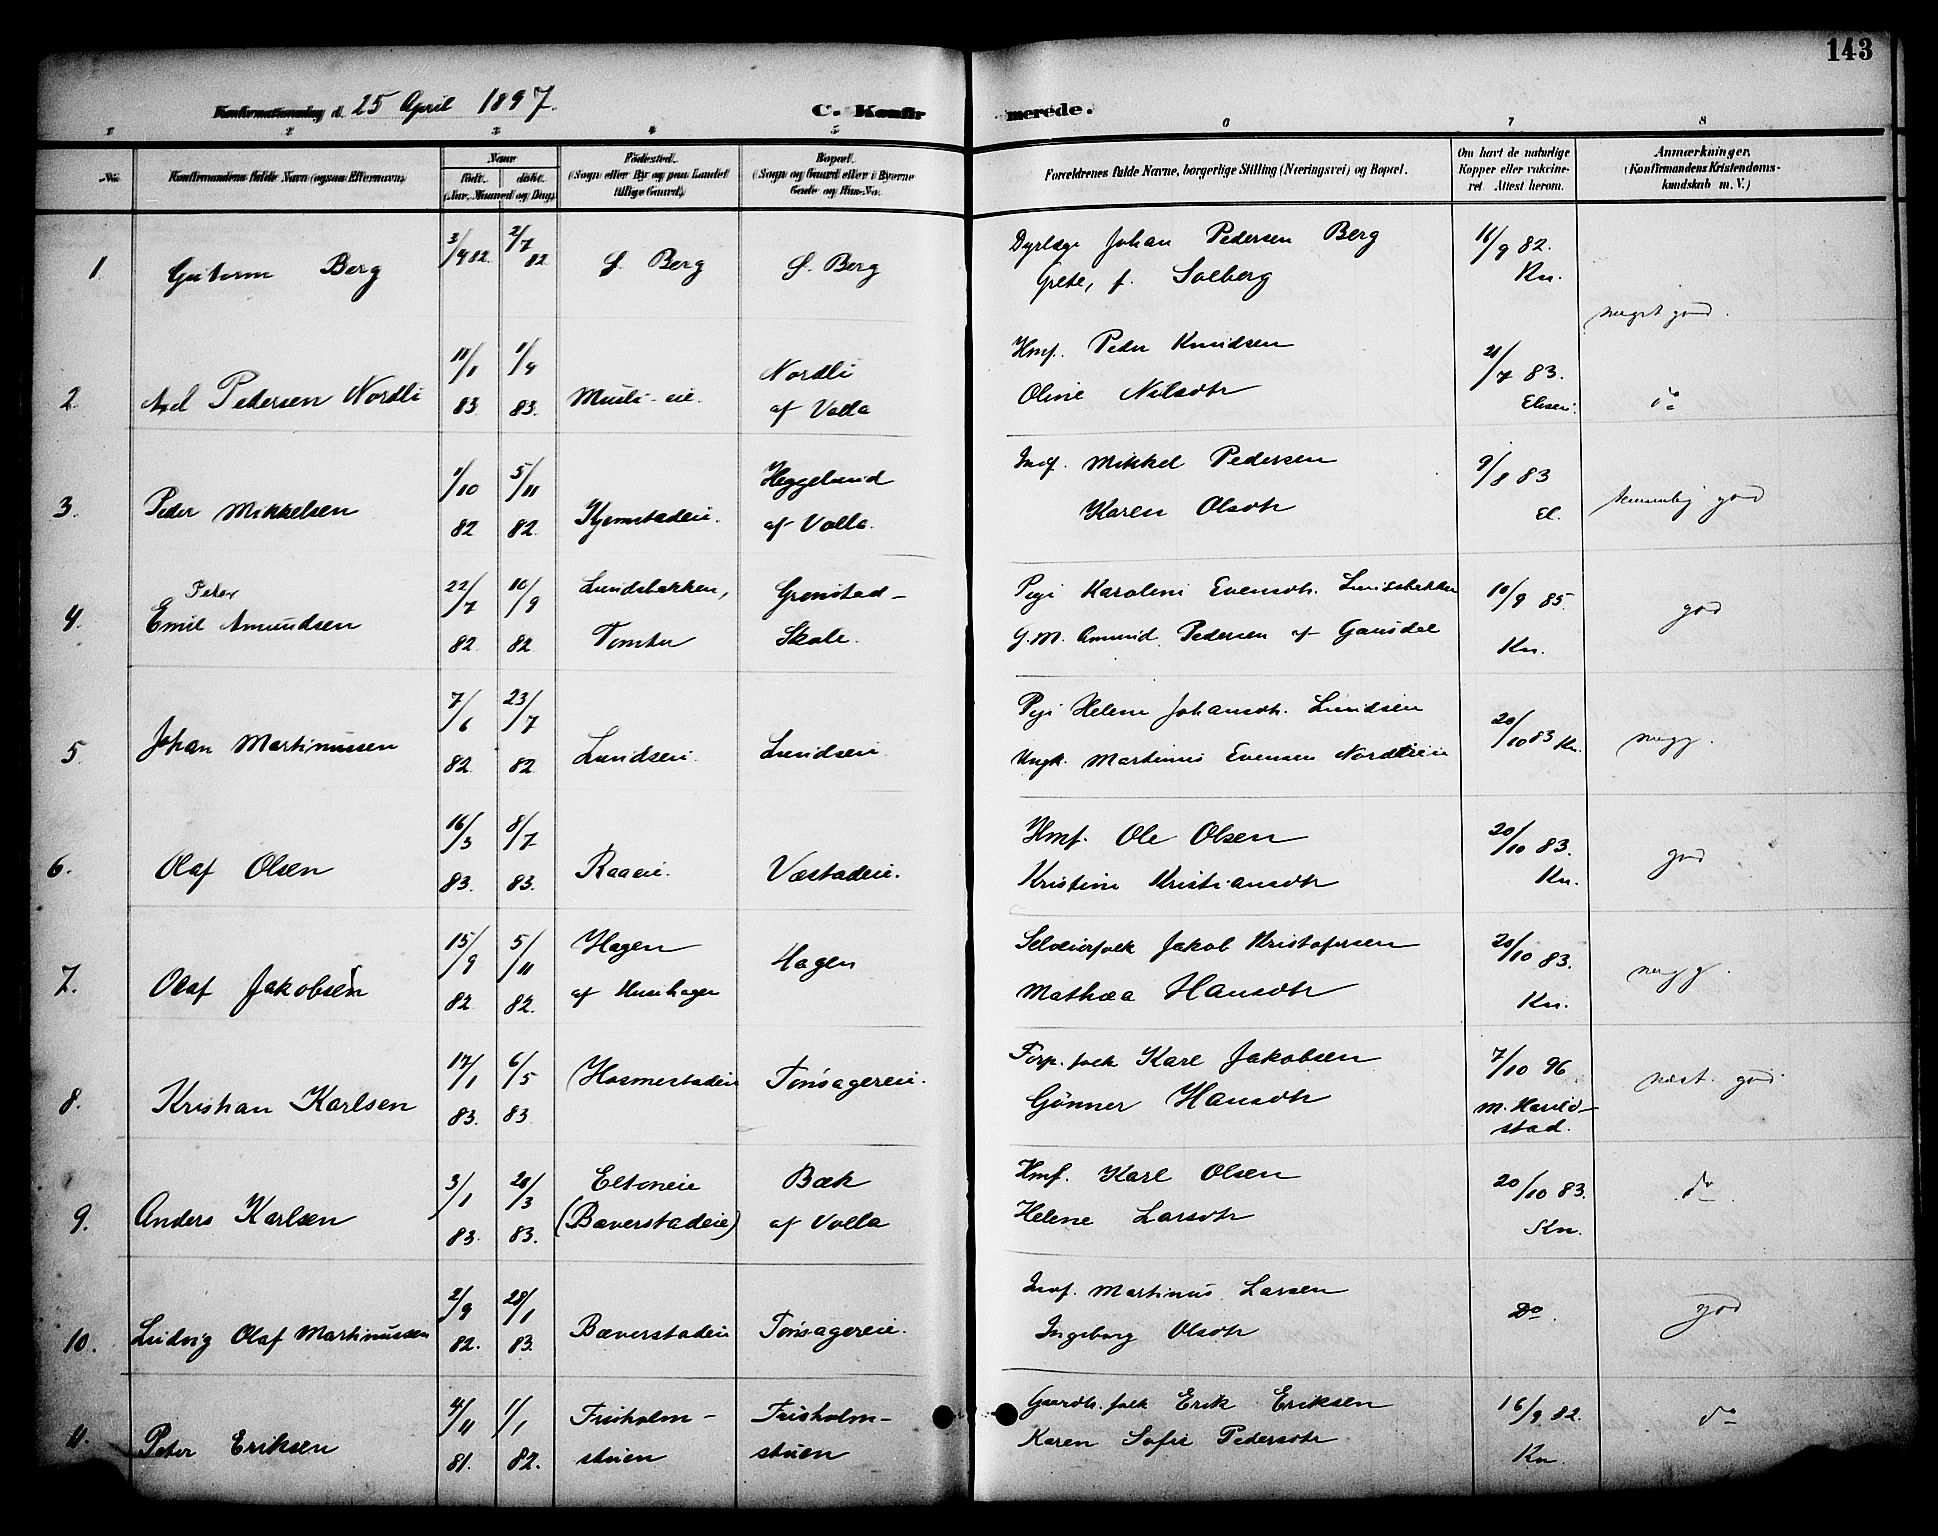 143
Konfirmationsdag d. 25 April 1897.
C. Konfirmerede.
1 2 3 4 5 6 7 8
No. Konfirmandens fulde Navn (ogsaa Efternavn).
Naar født. døbt. (Aar, Maaned og Dag)
Fødested. (Sogn eller By og paa Landet tillige Gaard).
Bopæl. (Sogn og Gaard eller i Byerne Gade og Hus-No.
Forældrenes fulde Navne, borgerlige Stilling (Næringsvei) og Bopæl.
Om havt de naturlige Kopper eller vaccineret. Attest herom.
Anmærkninger, (Konfirmandens Kristendomskundskab m. V.)
1. Guttorm Berg 3/4 82 2/7 82 S. Berg S. Berg
Dyrlæge Johan Pedersen Berg
Grete, f. Solberg
16/9 82. Kn.
meget god.
2. Axel Pedersen Nordli 11/1 83 1/4 83. Musli-eie. Nordli af Volla
Hmf. Peder Knudsen
Oline Nilsdtr
21/7 83. do
3. Peder Mikkelsen 1/10 82 5/11 82. Kjemstadeie. Heggelund af Volla.
Indf. Mikkel Pedersen
Karen Olsdtr
9/8 83 El.
temmelig god
4. Peter
Emil Amundsen 22/7 82. 10/9 82 Lundsbakken, Tomter Grønstad-Skole.
Pige Karoline Evensdtr. Lundsbakken
G. M. Amund Pedersen af Gausdal
10/9 85. Kn.
god
5 Johan Martinussen 7/6 82. 23/7 82 Lundseie. Lundseie
Pige Helene Johansdtr. Lundseie
Ungk. Martinus Evensen Nordlieie
20/10 83 Kn. meg g.
6. Olaf Olsen 16/3 83. 8/7 83. Raaeie. Væstadeie.
Hmf. Ole Olsen
Kristine Kristiansdtr
20/10 83. Kn.
god
7. Olaf Jakobsen 15/9 82 5/11 82. Hagen af Hagen
Selveierfolk Jakob Kristofersen
Mathea Hansdtr
20/10 83. Kn.
meg g.
8. Kristian Karlsen 17/1 83. 6/5 83 Hosmestadeie Tønsagereie.
Torp. folk Karl Jakobsen
Gønner Hansdtr
7/10 96 M. Haraldstad.
næst. god.
9. Anders Karlsen 3/1 83. 20/3 83. Eltoneie (Bæverstadeie) Bæk af Volla
Hmf. Karl Olsen
Helene Larsdtr
20/10 83. Kn.
do
10. Ludvig Olaf Martinussen 2/9 82. 28/1 83. Bæverstadeie Tønsagereie.
Indf. Martinus Larsen
Ingeborg Olsdtr
Do.
god
11. Peter Eriksen 4/11 81. 1/1 82. Frisholm-stuen Frisholm-stuen
Gaardb. folk Erik Eriksen
Karen Sofie Pedersdtr
16/9 82. Kn.
do